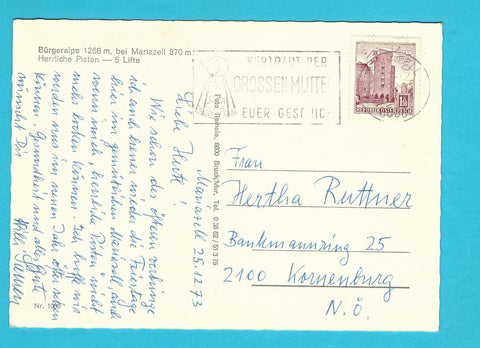 Bürgeralpe 1266 m, bei Mariazell 870 m
Herrliche Pisten — 5 Lifte
VERTRAUT DER
GROSSEN MUTTE
EUER GESCHICK
Mariazell 25.12.73
Liebe Herta!
Wie schon des öfteren verbringe
ich auch heuer wieder die Feiertage
hier im gemütlichen Mariazell, auch
wenn mich, herrliche Pisten nicht
mehr locken können. Ich hoffe wir
werden uns im neuen Jahr öfter sehen
können. Gesundheit und alles Gute
wünscht Dir
Willi
Nr.
Foto Riemele, 8600 Bruck/Mur, Tel. 0 38 62 / 51 3 75
Frau
Hertha Ruttner
Bankmannring 25
2100 Korneuburg
N.Ö.